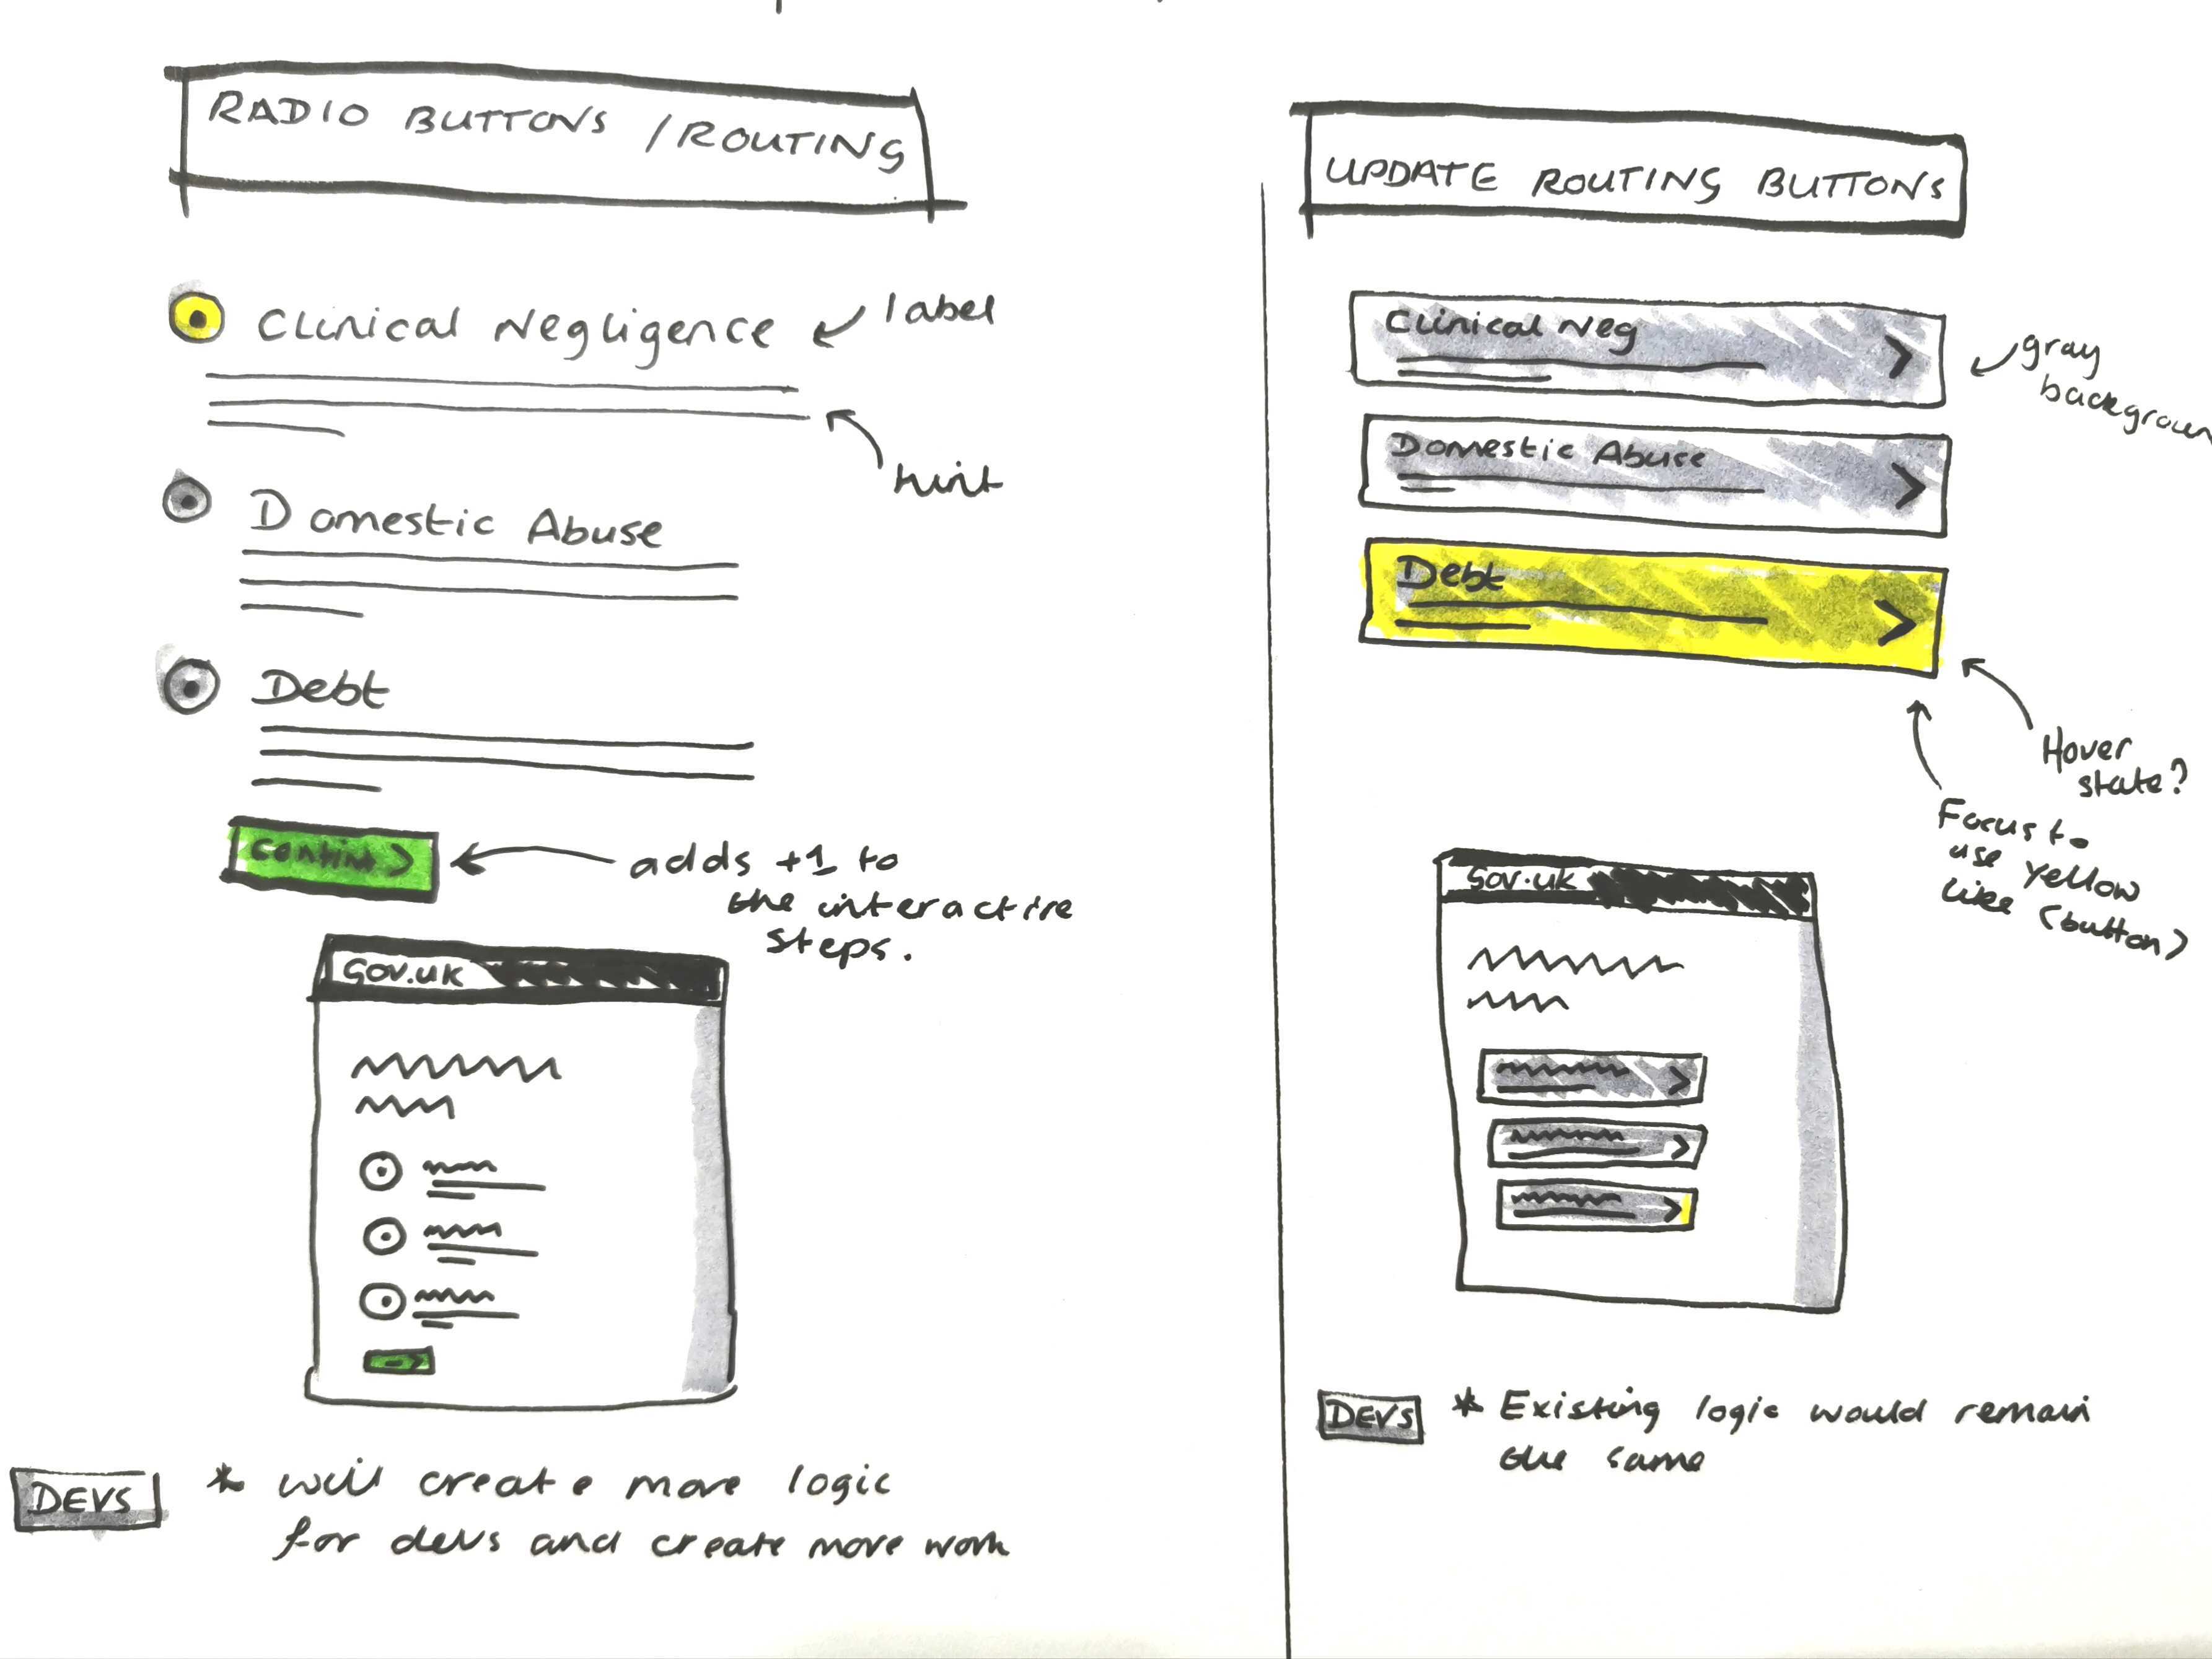 RADIO BUTTONS / ROUTING
Clinical Negligence
label
hint
Domestic Abuse
Debt
adds +1 to
the interactive
steps.
GOV.UK
DEVS
* will create more logic
for devs and create more work
UPDATE ROUTING BUTTONS
Clinical Neg
gray
backgroun
Domestic Abuse
Debt
Hover
state?
Focus to
use yellow
like (button)
GOV.UK
DEVS
* Existing logic would remain
the same